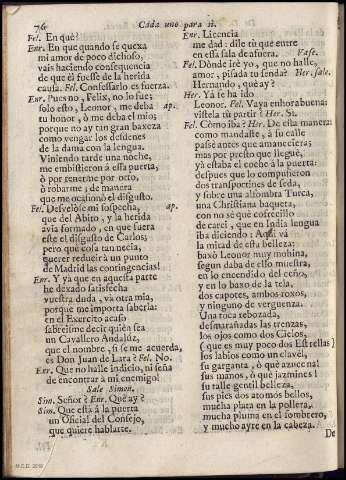 76
Cada uno para sì.
Fel. En què?
Enr. En que quando se quexa
mi amor de poco dichoso,
vais haciendo consequencia
de que èl fuesse de la herida
causa. Fel. Confessarlo es fuerza.
Enr. Pues no, Felix, no lo fue;
solo esto, Leonor, me deba ap.
tu honor, ò me deba el mio;
porque no ay tan gran baxeza
como vengar los desdenes
de la dama con la lengua.
Viniendo tarde una noche,
me embistieron à esta puerta,
ò por tenerme por otro,
ò robarme; de manera
que me ocasionò el disgusto.
Fel. Desvelòse mi sospecha, ap.
que del Abito, y la herida
avia formado, en que fuera
este el disgusto de Carlos;
pero què cosa tan necia,
querer reducir à un punto
de Madrid las contingencias!
Enr. Y ya que en aquesta parte
he dexado satisfecha
vuestra duda, và otra mia,
porque me importa saberla:
en el Exercito acaso
sabreisme decir quièn sea
un Cavallero Andalùz,
que el nombre, si se me acuerda,
es Don Juan de Lara? Fel. No.
Enr. Que no halle indicio, ni seña
de encontrar à mi enemigo!
Sale Simon.
Sim. Señor? Enr. Què ay?
Sim. Que està à la puerta
un Oficial del Consejo,
que quiere hablarte.
Enr. Licencia
me dad: dile tù que entre
en essa sala de afuera. Vase.
Fel. Dònde irè yo, que no halle,
amor, pisada tu senda? Her. sale.
Hernando, què ay?
Her. Yà se ha ido
Leonor. Fel. Vaya enhorabuena:
vistela tù partir? Her. Sì.
Fel. Còmo iba? Her. De esta manera:
como mandaste, à su calle
passè antes que amaneciera;
mas por presto que lleguè,
yà estaba el coche à la puerta:
despues que lo compusieron
dos trasportines de seda,
y sobre una alfombra Turca,
una Christiana baqueta,
con no sè què cofrecillo
de carei, que en India lengua
iba diciendo: Aqui và
la mitad de esta belleza:
baxò Leonor muy mohina,
segun daba de ello muestra,
en lo encendido del ceño,
y en lo baxo de la tela,
dos capotes, ambos roxos,
y ninguno de verguenza.
Una toca rebozada,
desmarañadas las trenzas,
los ojos como dos Cielos,
(que es muy poco dos Estrellas)
los labios como un clavèl,
su garganta, ò què azucena!
sus manos, ò què jazmines!
su talle gentil belleza,
sus pies dos atomos bellos,
mucha plata en la pollera,
mucha pluma en el sombrero,
y mucho ayre en la cabeza.
De